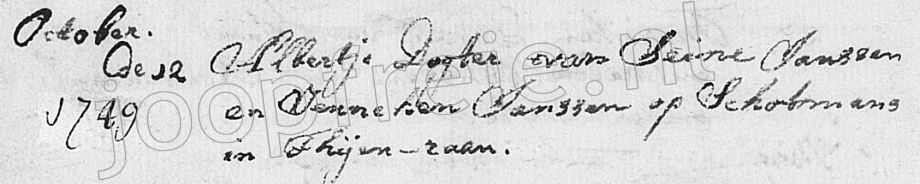 October.
De 12 Albertje Dogter van Seine Janssen
1749 en Venneken Janssen op Schotmans
in Thijen-raan.
joopfreje.nl